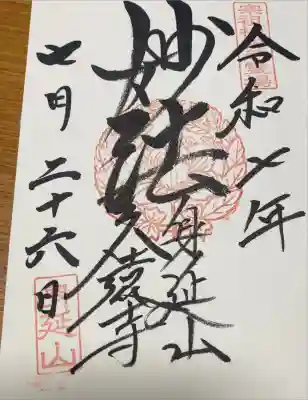 令和七年
妙法
身延山
久遠寺
七月二十六日